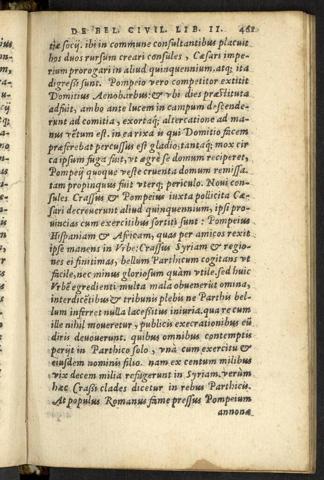 DE BEL. CIVIL. LIB. II. 461
tiæ socij. ibi in commune consultantibus placuit
hos duos rursum creari consules, Cæsari impe-
rium prorogari in aliud quinquennium. atq; ita
digressi sunt. Pompeio vero competitor extitit
Domitius Aenobarbus: & vbi dies præstituta
adfuit, ambo ante lucem in campum descende-
runt ad comitia, exortaq; altercatione ad ma-
nus vētum est. in ea rixa is qui Domitio facem
præferebat percussus est gladio. tantaq; mox cir
ca ipsum fuga fuit, vt ægre se domum reciperet,
Pompeij quoque veste cruenta domum remissa.
tam propinquus fuit vterq; periculo. Noui con-
sules Crassus & Pompeius iuxta pollicita Cæ-
sari decreuerunt aliud quinquennium, ipsi pro-
uincias cum exercitibus sortiti sunt: Pompeius
Hispaniam & Africam, quas per amicos rexit
ipse manens in Vrbe: Crassus Syriam & regio-
nes ei finitimas, bellum Parthicum cogitans vt
facile, nec minus gloriosum quàm vtile. sed huic
Vrbē egredienti multa mala obuenerūt omina,
interdicētibus & tribunis plebis ne Parthis bel-
lum inferret nulla lacessitus iniuria. qua re cum
ille nihil moueretur, publicis execrationibus eū
diris deuouerunt. quibus omnibus contemptis
perijt in Parthico solo, vnà cum exercitu &
eiusdem nominis filio. nam ex centum milibus
vix decem milia refugerunt in Syriam. verùm
hæc Crassi clades dicetur in rebus Parthicis.
At populus Romanus fame pressus Pompeium
annonæ